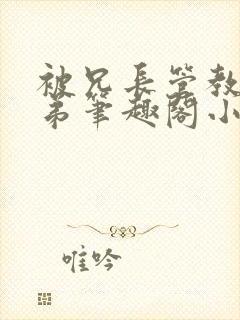 被兄长管教
弟笔趣阁小
唯吟